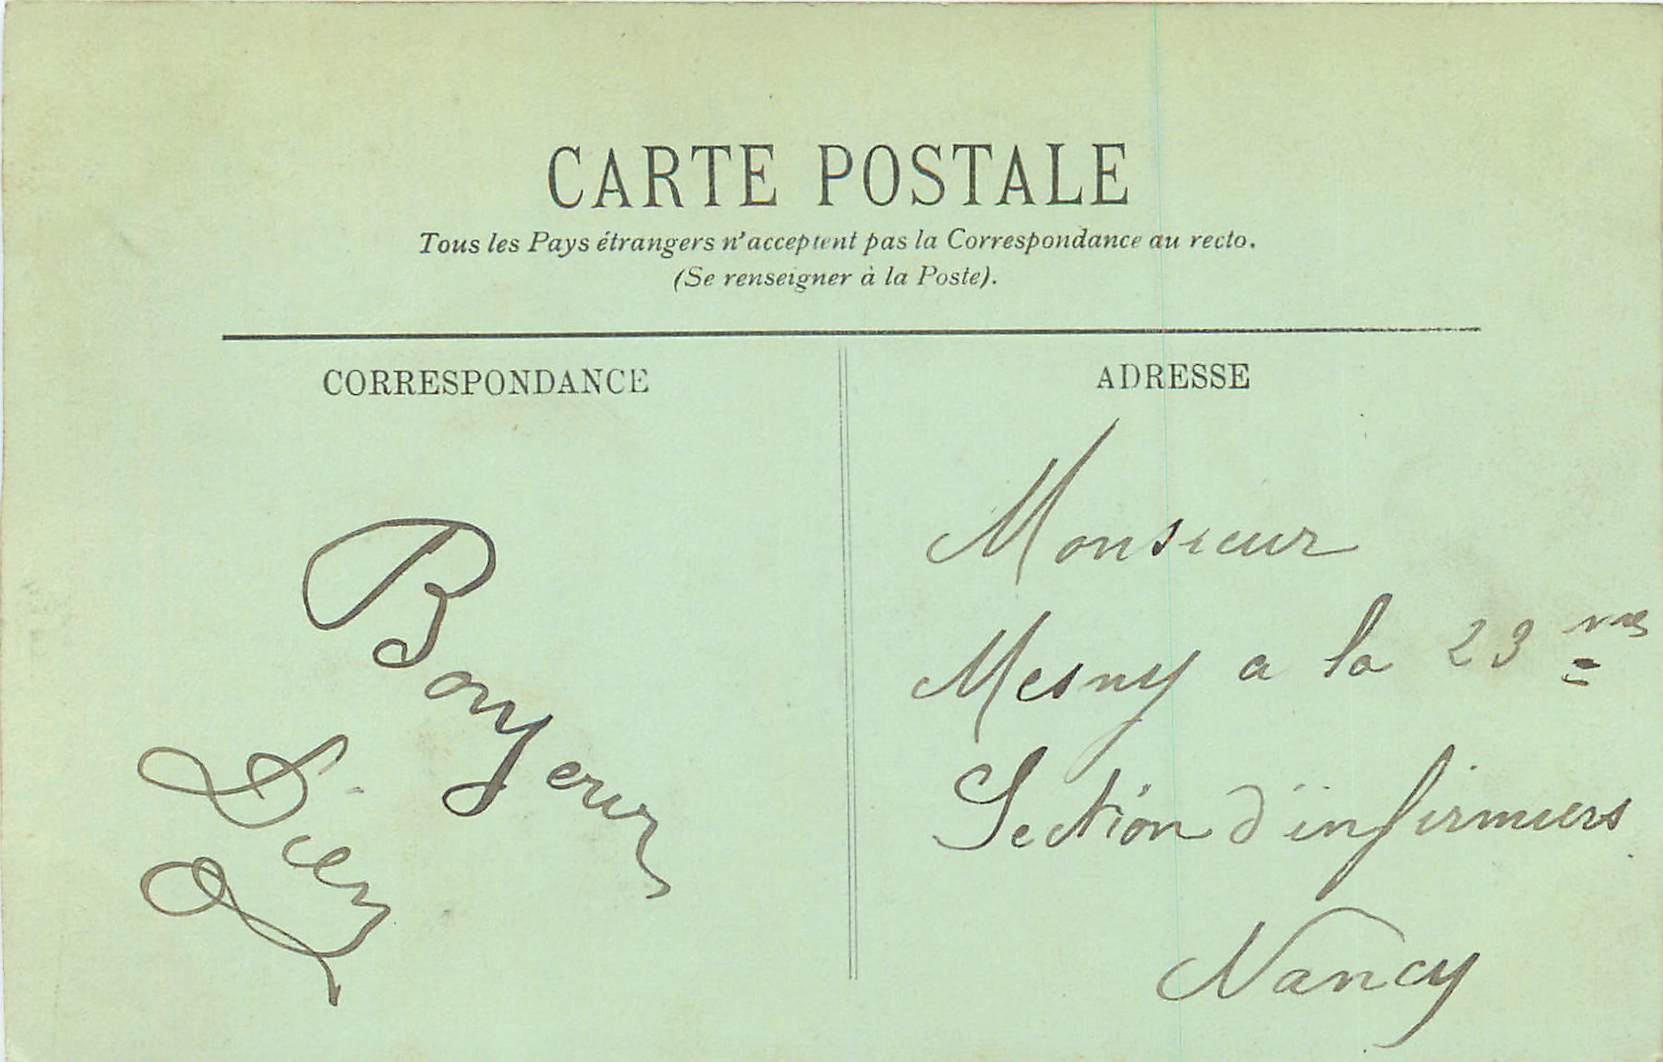 CARTE POSTALE
Tous les Pays étrangers n'acceptent pas la Correspondance au recto.
(Se renseigner à la Poste).
CORRESPONDANCE
Bonjour
ADRESSE
Monsieur
Mesny a la 23 me
Section d'infirmiers
Nancy